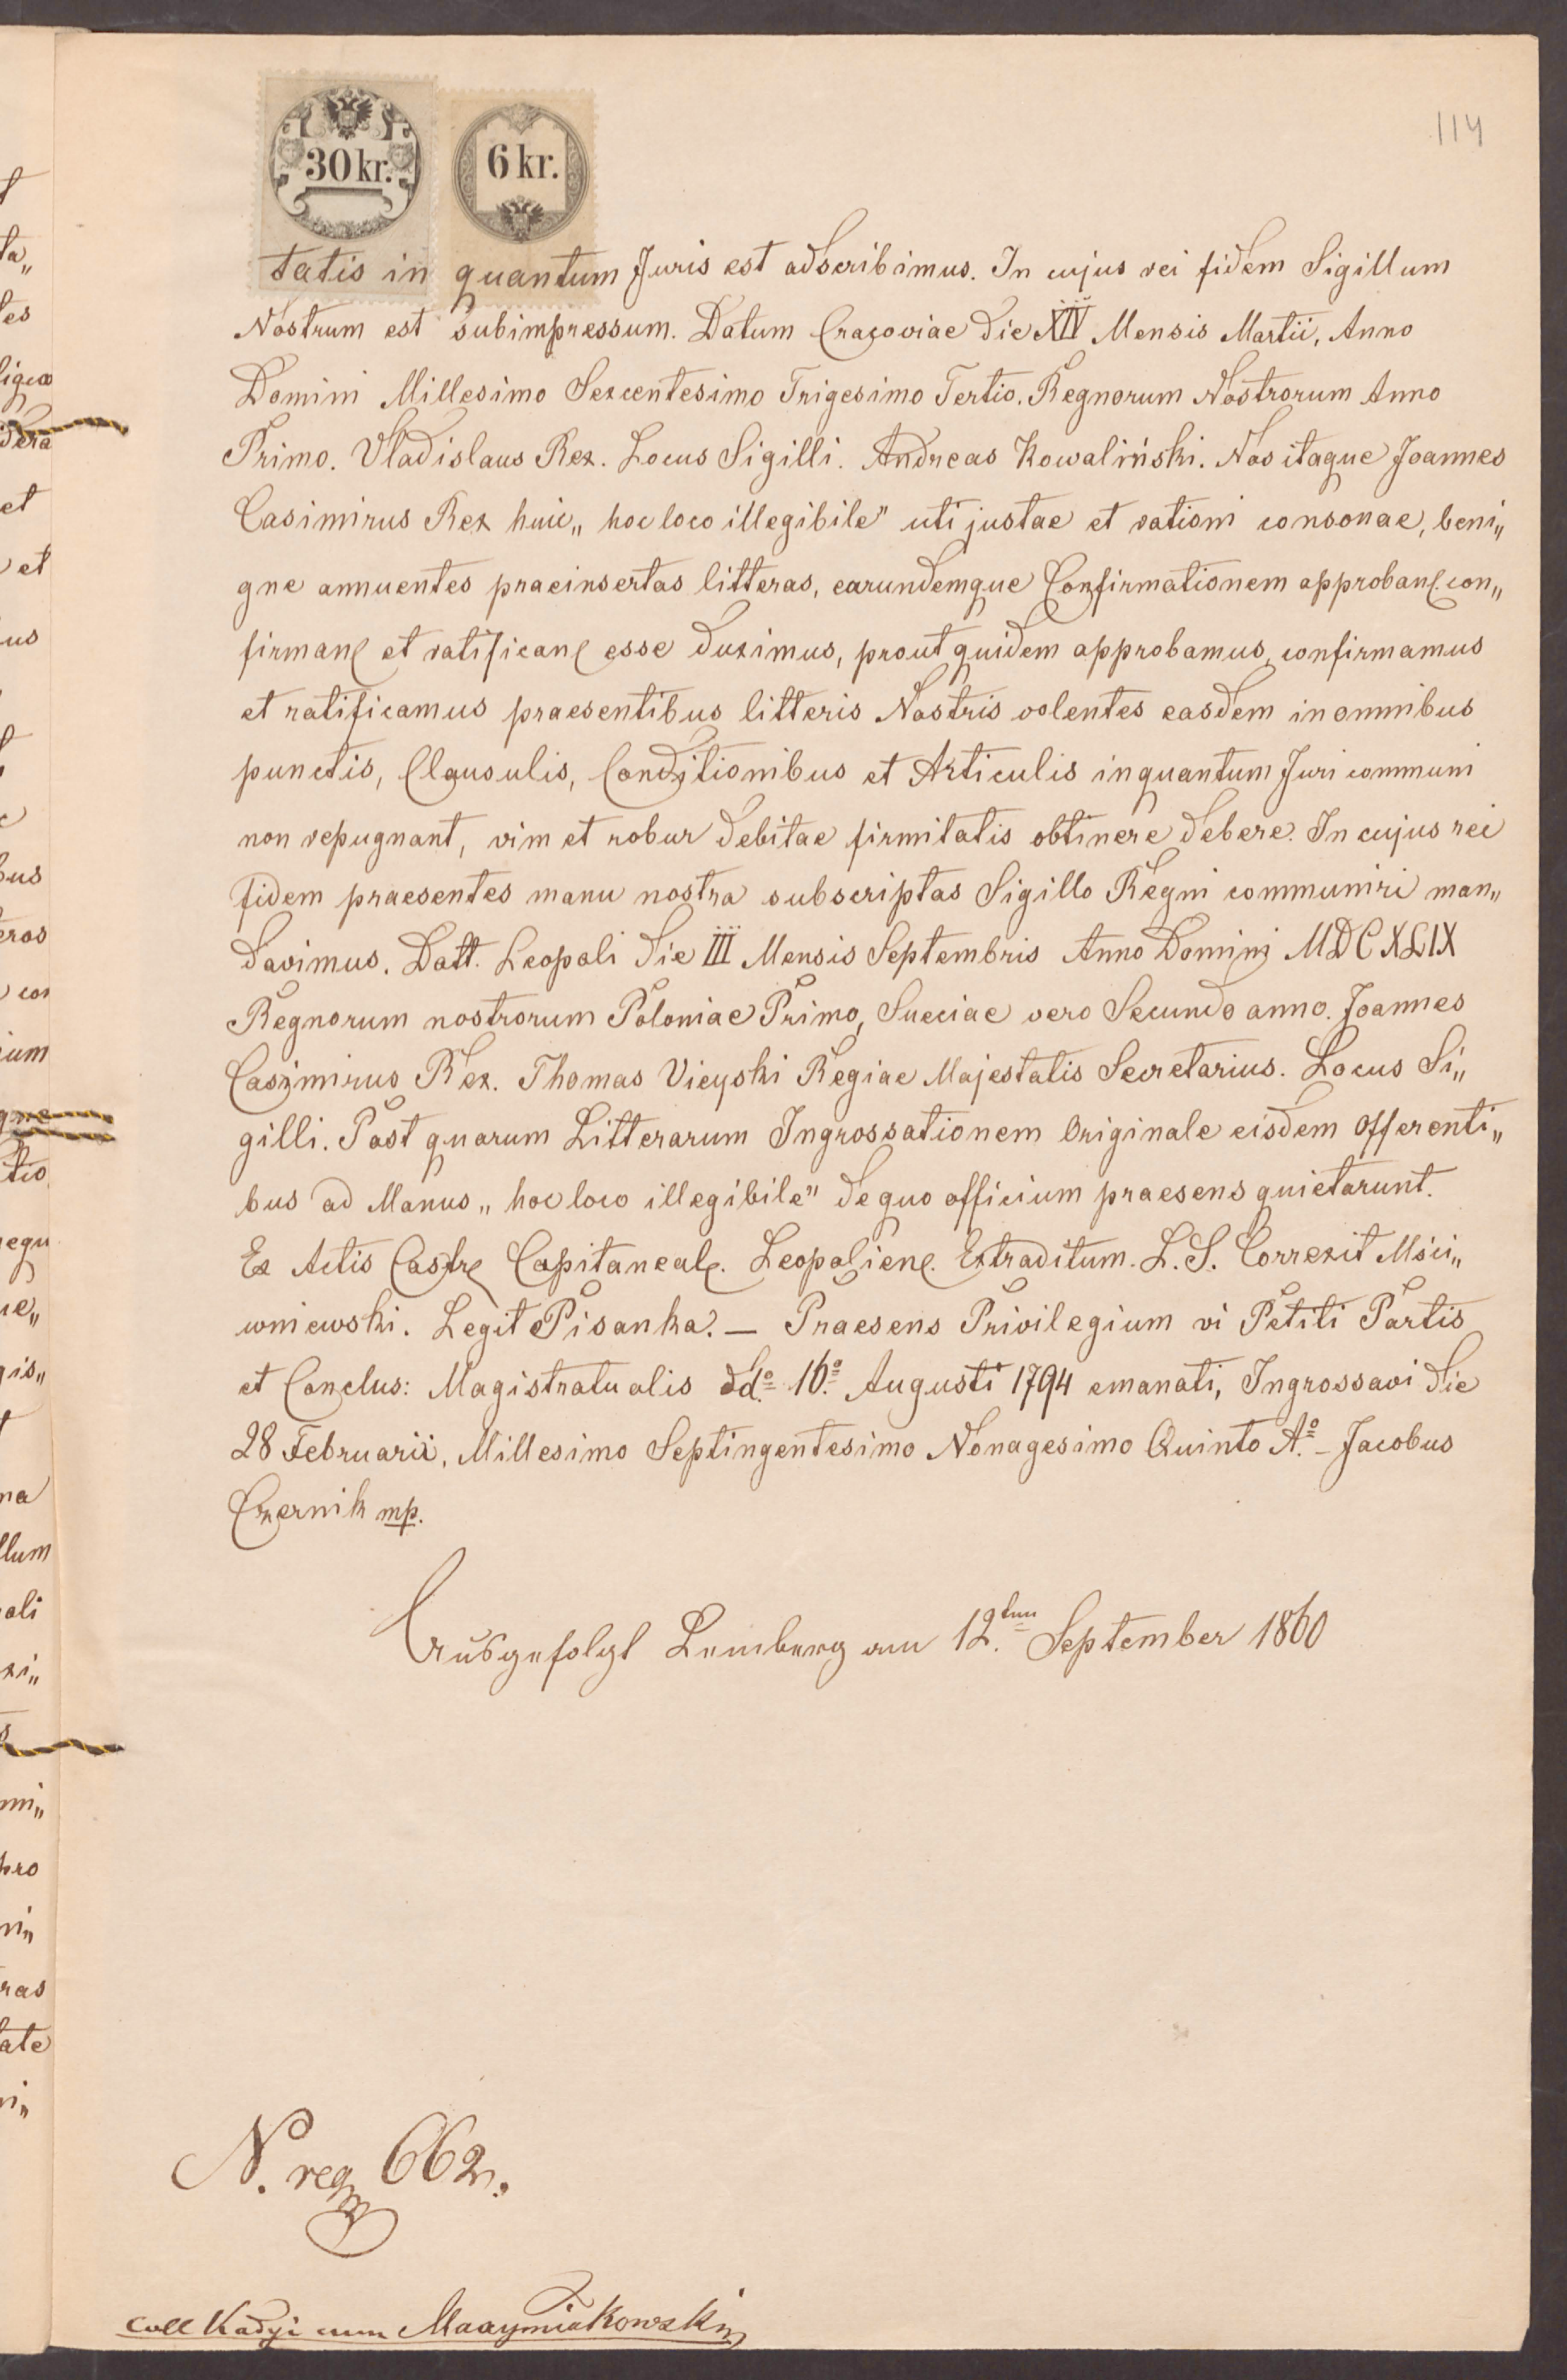 114
30 kr.
6 kr.
tatis in quantum Juris est adscribimus. In cujus rei fidem Sigillum
Nostrum est subimpressum. Datum Cracoviae die XIV Mensis Martii, Anno
Domini Millesimo Sexcentesimo Trigesimo Tertio. Regnorum Nostrorum Anno
Primo. Vladislaus Rex. Locus Sigilli. Andreas Kowaliński. Nos itaque Joannes
Casimirus Rex huic „hoc loco illegibile" uti justae et rationi consonae, beni„
gne annuentes praeinsertas litteras, earundemque Confirmationem approban. con„
firman et ratifican esse duximus, prout quidem approbamus, confirmamus
et ratificamus praesentibus litteris Nostris volentes easdem in omnibus
punctis, Clausulis, Conditionibus et Articulis inquantum Juri communi
non repugnant, vim et robur debitae firmitatis obtinere debere. In cujus rei
fidem praesentes manu nostra subscriptas Sigillo Regni communiri man„
davimus. Datt. Leopoli die III Mensis Septembris Anno Domini MDCXLIX
Regnorum nostrorum Poloniae Primo, Sueciae vero Secundo anno. Joannes
Casimirus Rex. Thomas Vieyski Regiae Majestatis Secretarius. Locus Si„
gilli. Post quarum Litterarum Ingrossationem Originale eisdem Offerenti„
bus ad Manus „hoc loco illegibile" de quo officium praesens quietarunt.
Ex Actis Castr. Capitaneal. Leopolien. Extraditum. L. S. Correxit Mści„
wniewski. Legit Pisanka. — Praesens Privilegium vi Petiti Partis
et Conclus: Magistratualis dd.º 16.º Augusti 1794 emanati, Ingrossavi die
28 Februarii, Millesimo Septingentesimo Nonagesimo Quinto A.º – Jacobus
Czernik mp.
Ausgefolgt Lemberg am 12.ten September 1860
N. reg 662.
Coll Kadyi cum